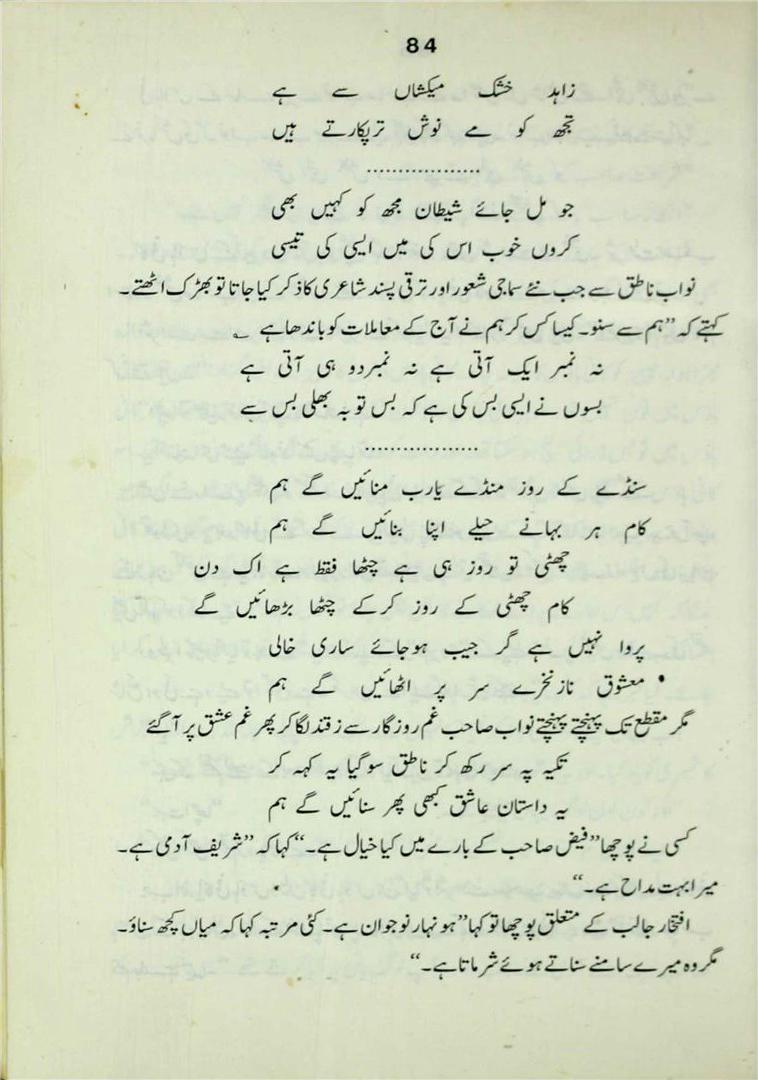 84
زاہد خشک میکشاں سے ہے
تجھ کو مے نوش تر پکارتے ہیں
..................
جو مل جائے شیطان مجھ کو کہیں بھی
کروں خوب اس کی میں ایسی کی تیسی
نواب ناطق سے جب نئے سماجی شعور اور ترقی پسند شاعری کا ذکر کیا جاتا تو بھڑک اٹھتے۔
کہتے کہ ”ہم سے سنو۔ کیسا کس کر ہم نے آج کے معاملات کو باندھا ہے ؎
نہ نمبر ایک آتی ہے نہ نمبر دو ہی آتی ہے
بسوں نے ایسی بس کی ہے کہ بس توبہ بھلی بس ہے
..................
سنڈے کے روز منڈے یارب منائیں گے ہم
کام ہر بہانے حیلے اپنا بنائیں گے ہم
چھٹی تو روز ہی ہے چٹھا فقط ہے اک دن
کام چھٹی کے روز کرکے چٹھا بڑھائیں گے
پروا نہیں ہے گر جیب ہوجائے ساری خالی
معشوق ناز نخرے سر پر اٹھائیں گے ہم
مگر مقطع تک پہنچتے پہنچتے نواب صاحب غم روزگار سے زقند لگا کر پھر غم عشق پر آگئے
تکیہ پہ سر رکھ کر ناطق سوگیا یہ کہہ کر
یہ داستان عاشق کبھی پھر سنائیں گے ہم
کسی نے پوچھا ”فیض صاحب کے بارے میں کیا خیال ہے۔“ کہا کہ ”شریف آدمی ہے۔
میرا بہت مداح ہے۔“
افتخار جالب کے متعلق پوچھا تو کہا ”ہونہار نوجوان ہے۔ کئی مرتبہ کہا کہ میاں کچھ سناؤ۔
مگر وہ میرے سامنے سناتے ہوئے شرماتا ہے۔“